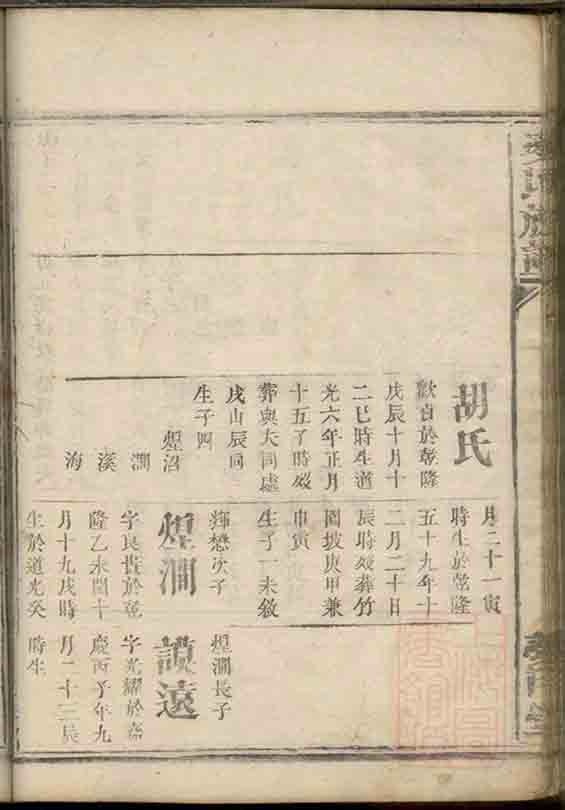 胡氏
歡貞於乾隆
戊辰十月十
二巳時生道
光六年正月
十五丁時歿
葬與大同處
戌山辰向
生子四
煋沼
澗
溪
海
月二十一寅
時生於乾隆
五十九年十
二月二十日
辰時歿葬竹
園坡庚甲兼
申寅
生子一未敘
輝懋次子
煋澗
字良 於乾
隆乙未閏十
月十九戌時
生於道光癸
煋澗長子
謨遠
字光耀於嘉
慶丙子年九
月二十三辰
時生
氏族譜